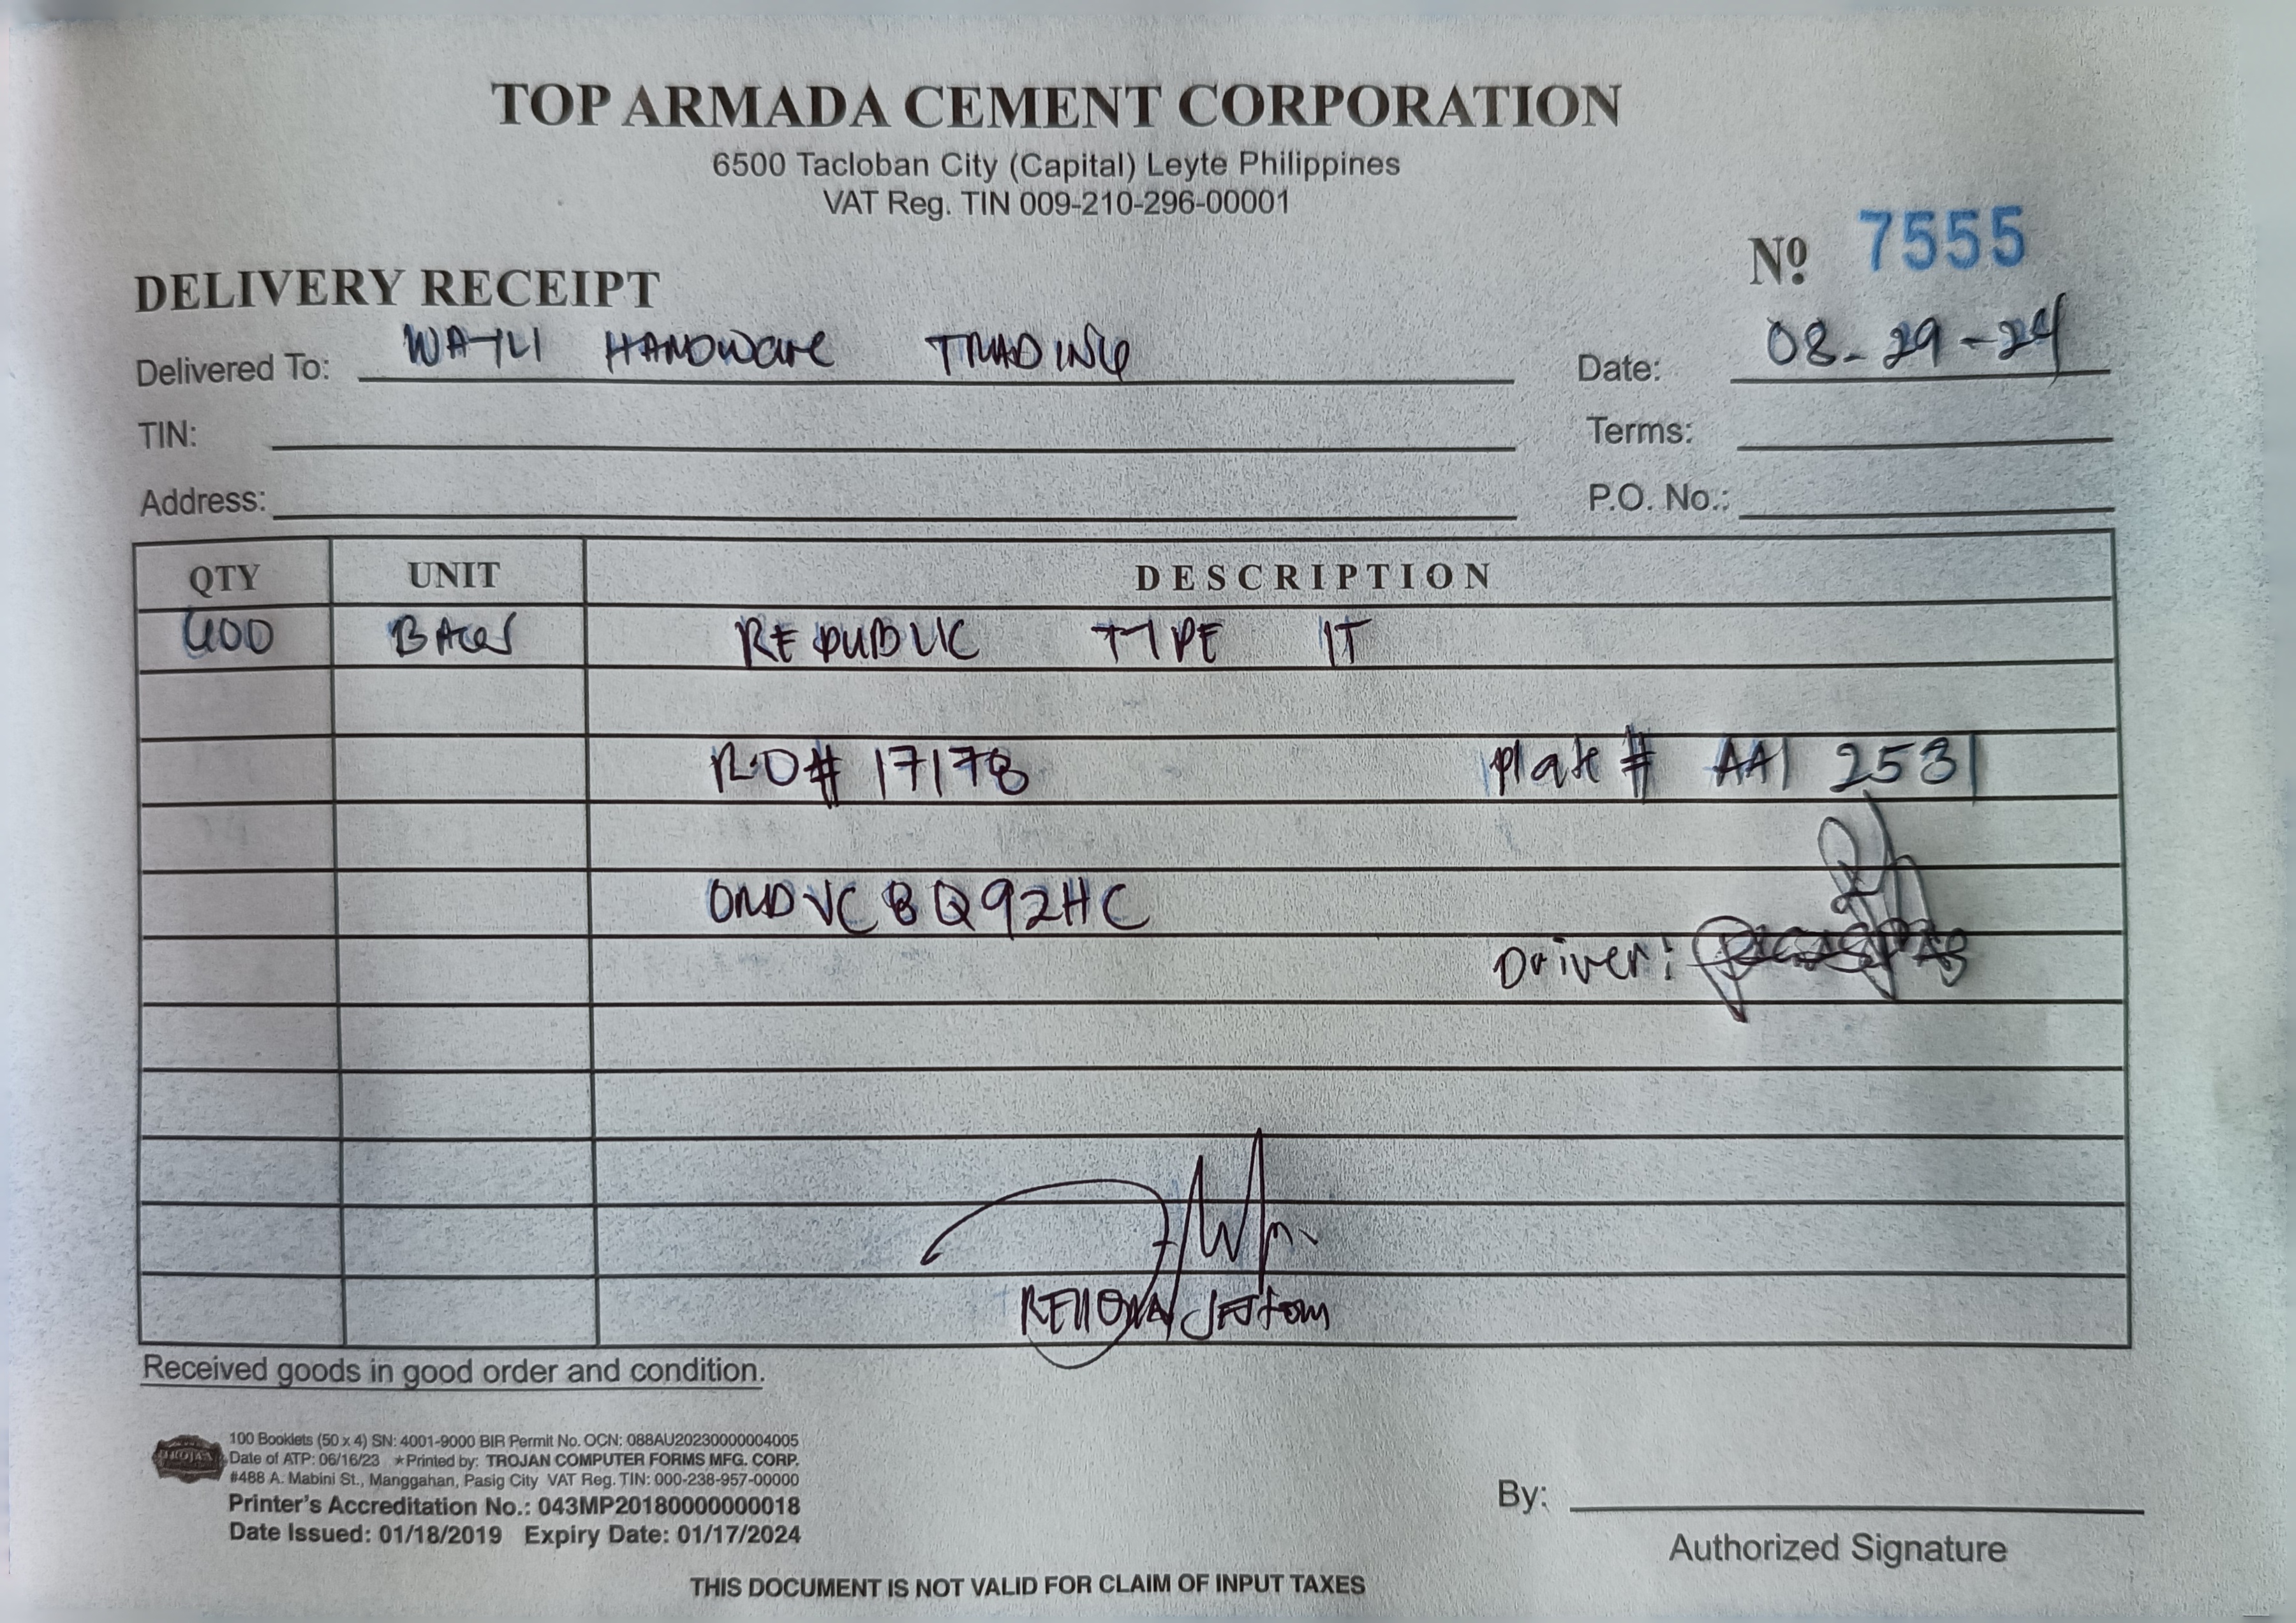 TOP ARMADA CEMENT CORPORATION
6500 Tacloban City (Capital) Leyte Philippines
VAT Reg. TIN 009-210-296-00001
Nº 7555
DELIVERY RECEIPT
Delivered To: WA-YLI HARDWARE TRADING Date: 08-29-24
TIN: Terms:
Address: P.O. No.:
QTY UNIT DESCRIPTION
400 BAGS REPUBLIC TYPE 1T
R.O# 17178 Plate # AAI 2531
OMDVC8Q92HC
Driver:
Received goods in good order and condition.
TROJAN
100 Booklets (50 x 4) SN: 4001-9000 BIR Permit No. OCN: 088AU20230000004005
Date of ATP: 06/16/23 ★Printed by: TROJAN COMPUTER FORMS MFG. CORP.
#488 A. Mabini St., Manggahan, Pasig City VAT Reg. TIN: 000-238-957-00000
Printer's Accreditation No.: 043MP20180000000018
Date Issued: 01/18/2019 Expiry Date: 01/17/2024
By:
Authorized Signature
THIS DOCUMENT IS NOT VALID FOR CLAIM OF INPUT TAXES